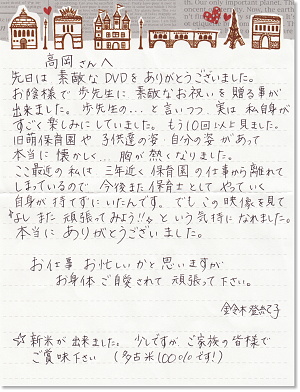 高岡さんへ
先日は素敵なDVDをありがとうございました。
お陰様で歩先生に素敵なお祝いを贈る事が
出来ました。歩先生の...と言いつつ、実は私自身が
すごく楽しみにしていました。もう10回以上見ました。
旧萌保育園や子供達の姿・自分の姿があって
本当に懐かしく...胸が熱くなりました。
ここ最近の私は三年近く保育園の仕事から離れて
しまっているので今後また保育士としてやっていく
自身が持てずにいたんです。でもこの映像を見て
"よしまた頑張ってみよう!!"という気持になれました。
本当にありがとうございました。
お仕事お忙しいかと思いますが
お身体ご自愛されて頑張って下さい。
鈴木
☆新米が出来ました。少しですが、ご家族の皆様で
ご賞味下さい(多古米100%です!)